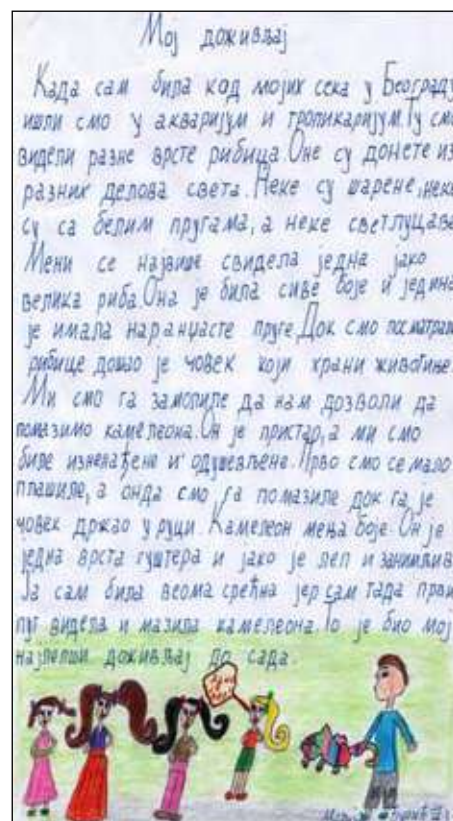 Мој доживљај
Када сам била код мојих сека у Београду
ишли смо у акваријум и тропикаријум. Ту смо
видели разне врсте рибица. Оне су донете из
разних делова света. Неке су шарене, неке
су са белим пругама, а неке светлуцаве.
Мени се највише свидела једна јако
велика риба. Она је била сиве боје и једина
је имала наранџасте пруге. Док смо посматрали
рибице дошао је човек који храни животиње.
Ми смо га замолиле да нам дозволи да
помазимо камелеона. Он је пристао, а ми смо
биле изненађене и одушевљене. Прво смо се мало
плашиле, а онда смо га помазиле док га је
човек држао у руци. Камелеон мења боје. Он је
једна врста гуштера и јако је леп и занимљив.
Ја сам била веома срећна јер сам тада први
пут видела и мазила камелеона. То је био мој
најлепши доживљај до сада.